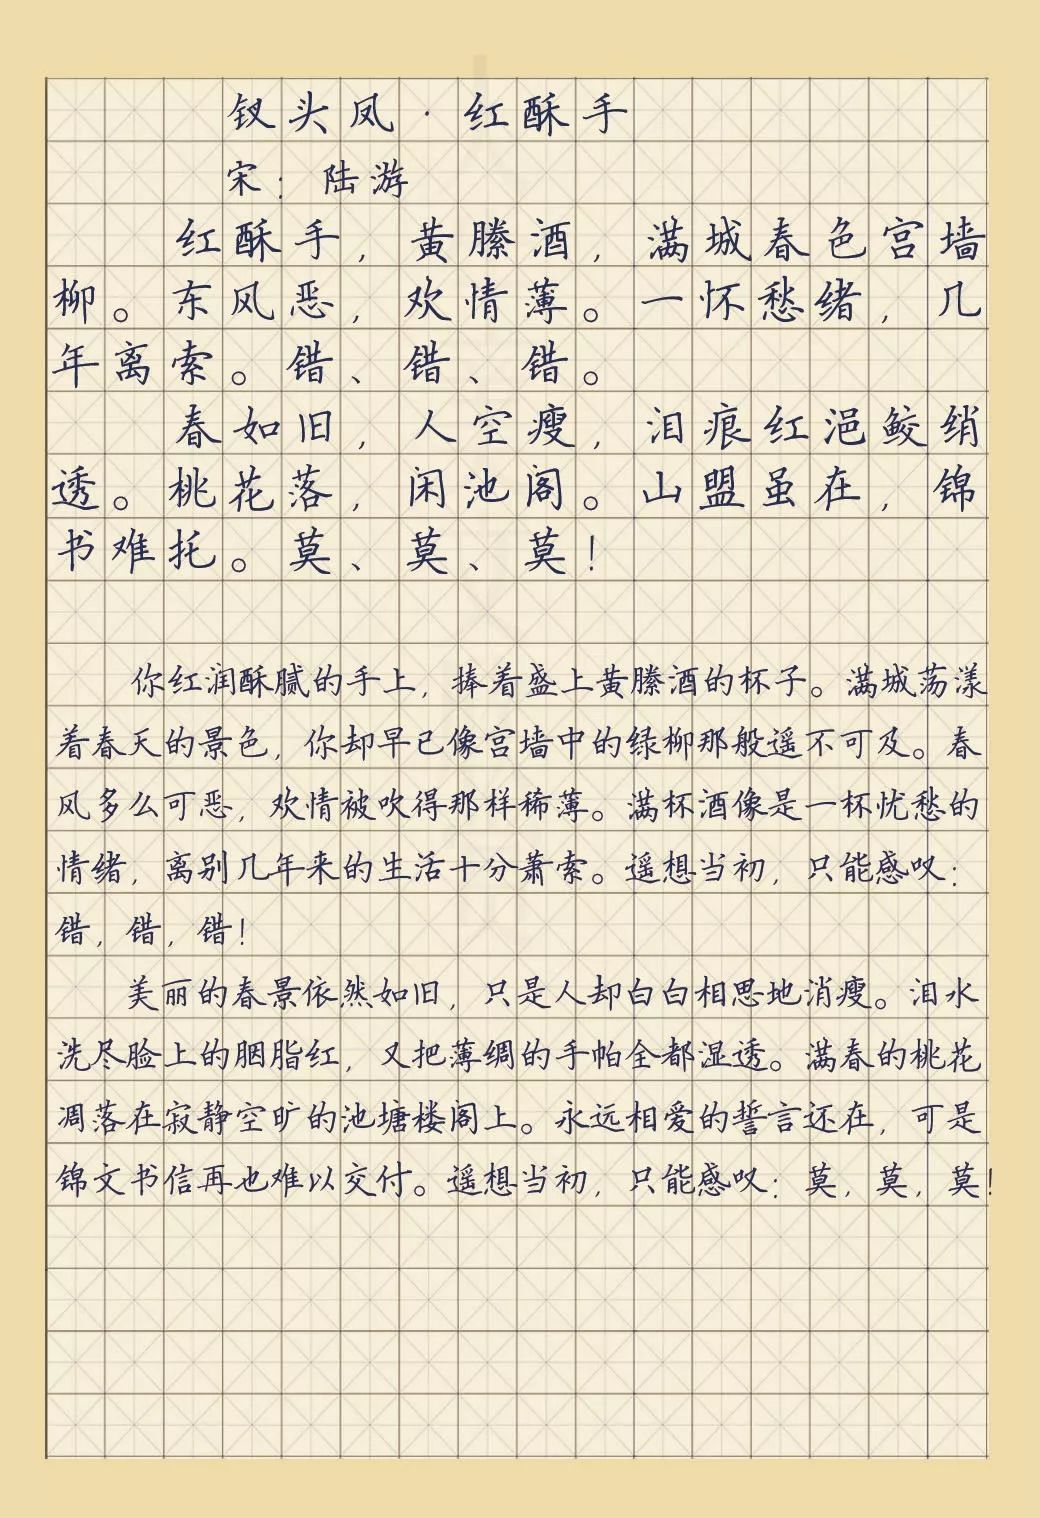 钗头凤·红酥手
宋：陆游
红酥手，黄縢酒，满城春色宫墙
柳。东风恶，欢情薄。一怀愁绪，几
年离索。错、错、错。
春如旧，人空瘦，泪痕红浥鲛绡
透。桃花落，闲池阁。山盟虽在，锦
书难托。莫、莫、莫！
你红润酥腻的手上，捧着盛上黄縢酒的杯子。满城荡漾
着春天的景色，你却早已像宫墙中的绿柳那般遥不可及。春
风多么可恶，欢情被吹得那样稀薄。满杯酒像是一杯忧愁的
情绪，离别几年来的生活十分萧索。遥想当初，只能感叹：
错，错，错！
美丽的春景依然如旧，只是人却白白相思地消瘦。泪水
洗尽脸上的胭脂红，又把薄绸的手帕全都湿透。满春的桃花
凋落在寂静空旷的池塘楼阁上。永远相爱的誓言还在，可是
锦文书信再也难以交付。遥想当初，只能感叹：莫，莫，莫！